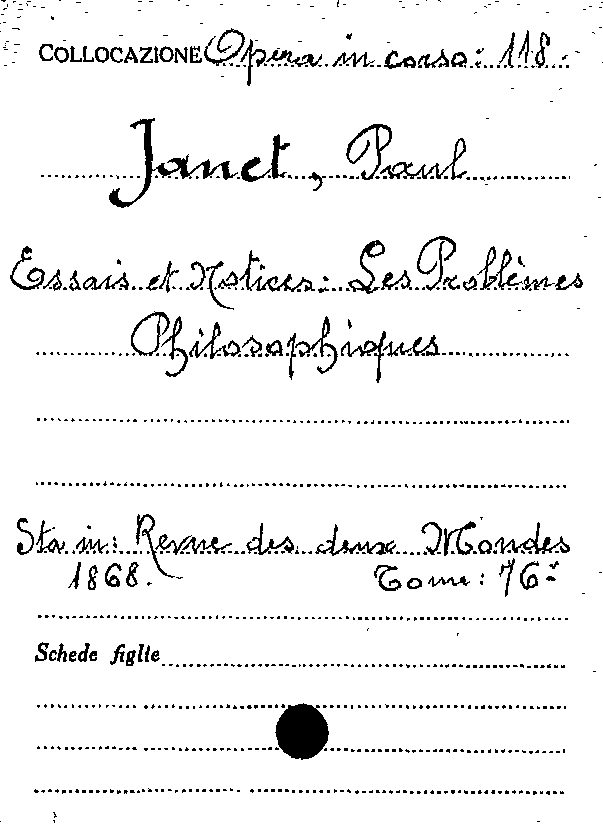 COLLOCAZIONE Opera in corso: 118.
Janet, Paul
Essais et Notices: Les Problèmes
Philosophiques
Sta in: Revue des deux Mondes
1868. Tome: 76º
Schede figlie